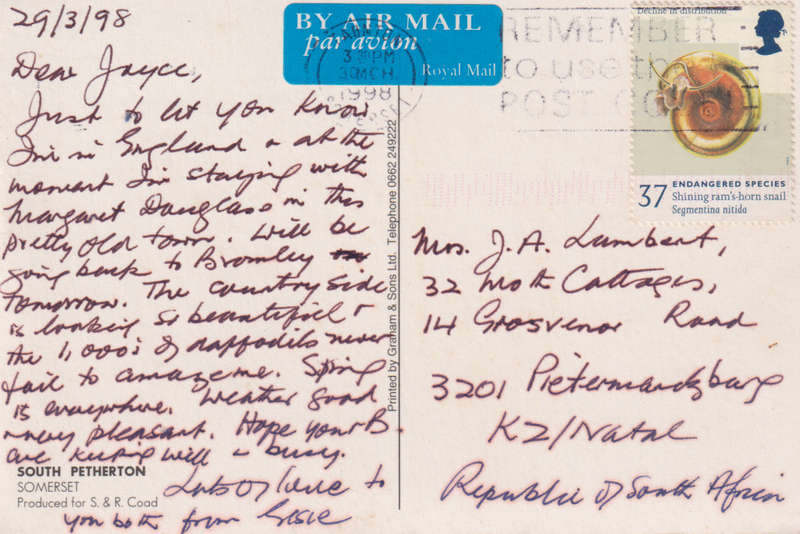 29/3/98
Dear Joyce,
Just to let you know
I'm in England & at the
moment I'm staying with
Margaret Douglas in this
pretty old town. Will be
going back to Bromley
tomorrow. The country side
is looking so beautiful &
the 1,000s of daffodils never
fail to amaze me. Spring
is everywhere. Weather good
& very pleasant. Hope you & B.
are keeping well & busy.
Lots of love to
you both from
SOUTH PETHERTON
SOMERSET
Produced for S. & R. Coad
Printed by Graham & Sons Ltd. Telephone 0662 249222
BY AIR MAIL
par avion
Royal Mail
30 MCH
1998
REMEMBER
to use the
POST CO
Decline in distribution
37
ENDANGERED SPECIES
Shining ram's-horn snail
Segmentina nitida
Mrs. J.A. Lambert,
32 Mott Cottages,
14 Grosvenor Road
3201 Pietermaritzburg
KZ/Natal
Republic of South Africa